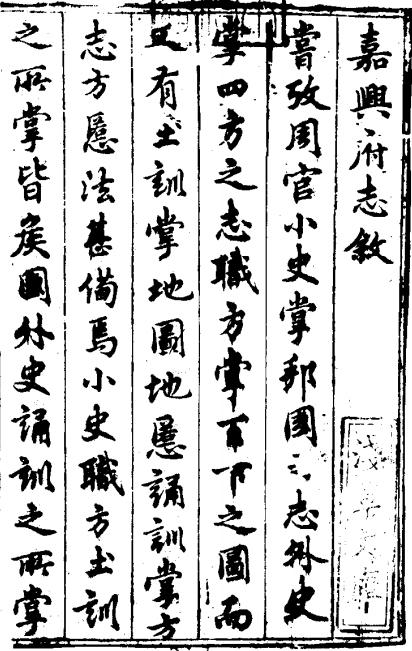 嘉興府志敘
嘗攷周官小史掌邦國之志外史
掌四方之志職方掌天下之圖而
又有土訓掌地圖地慝誦訓掌方
志方慝法甚備焉小史職方土訓
之所掌皆侯國外史誦訓之所掌